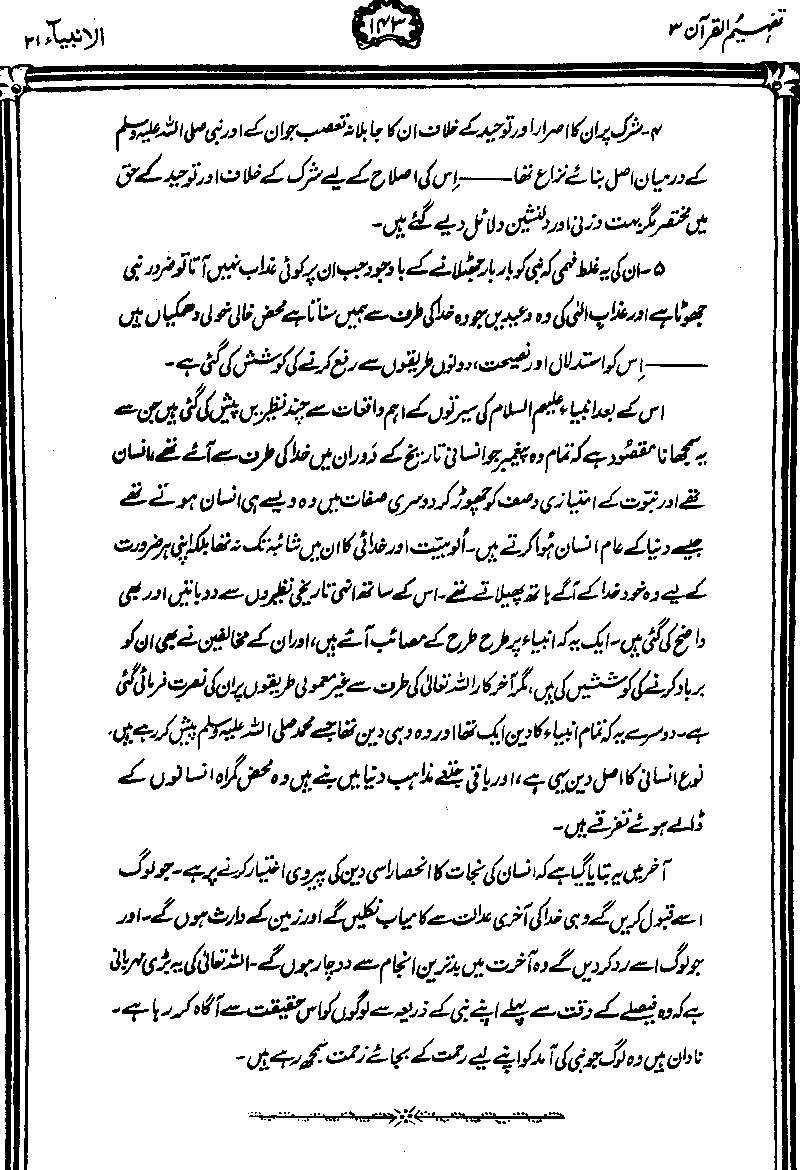 تفہیم القرآن ۳
۱۴۳
الانبیاء ۲۱
۴- شرک پر ان کا اصرار اور توحید کے خلاف ان کا جاہلانہ تعصب جو ان کے اور نبی صلی اللہ علیہ وسلم
کے درمیان اصل بنائے نزاع تھا ——— اِس کی اصلاح کے لیے شرک کے خلاف اور توحید کے حق
میں مختصر مگر بہت وزنی اور دلنشین دلائل دیے گئے ہیں۔
۵- ان کی یہ غلط فہمی کہ نبی کو بار بار جھٹلانے کے باوجود جب ان پر کوئی عذاب نہیں آتا تو ضرور نبی
جھوٹا ہے اور عذابِ الٰہی کی وہ وعیدیں جو وہ خدا کی طرف سے ہمیں سناتا ہے محض خالی خولی دھمکیاں ہیں
——— اِس کو استدلال اور نصیحت، دونوں طریقوں سے رفع کرنے کی کوشش کی گئی ہے۔
اس کے بعد انبیاء علیہم السلام کی سیرتوں کے اہم واقعات سے چند نظیریں پیش کی گئی ہیں جن سے
یہ سمجھانا مقصُود ہے کہ تمام وہ پیغمبر جو انسانی تاریخ کے دَوران میں خدا کی طرف سے آئے تھے، انسان
تھے اور نبوّت کے امتیازی وصف کو چھوڑ کر دوسری صفات میں وہ ویسے ہی انسان ہوتے تھے
جیسے دنیا کے عام انسان ہُوا کرتے ہیں۔ اُلوہیّت اور خدائی کا ان میں شائبہ تک نہ تھا بلکہ اپنی ہر ضرورت
کے لیے وہ خود خدا کے آگے ہاتھ پھیلاتے تھے۔ اس کے ساتھ انہی تاریخی نظیروں سے دو باتیں اور بھی
واضح کی گئی ہیں۔ ایک یہ کہ انبیاء پر طرح طرح کے مصائب آئے ہیں، اور ان کے مخالفین نے بھی ان کو
برباد کرنے کی کوششیں کی ہیں، مگر آخر کار اللہ تعالیٰ کی طرف سے غیر معمولی طریقوں پر ان کی نصرت فرمائی گئی
ہے۔ دوسرے یہ کہ تمام انبیاء کا دین ایک تھا اور وہ وہی دین تھا جسے محمد صلی اللہ علیہ وسلم پیش کر رہے ہیں۔
نوع انسانی کا اصل دین یہی ہے، اور باقی جتنے مذاہب دنیا میں بنے ہیں وہ محض گمراہ انسانوں کے
ڈالے ہوئے تفرقے ہیں۔
آخر میں یہ بتایا گیا ہے کہ انسان کی نجات کا انحصار اسی دین کی پیروی اختیار کرنے پر ہے۔ جو لوگ
اسے قبول کریں گے وہی خدا کی آخری عدالت سے کامیاب نکلیں گے اور زمین کے وارث ہوں گے۔ اور
جو لوگ اسے رد کر دیں گے وہ آخرت میں بدترین انجام سے دوچار ہوں گے۔ اللہ تعالیٰ کی یہ بڑی مہربانی
ہے کہ وہ فیصلے کے وقت سے پہلے اپنے نبی کے ذریعہ سے لوگوں کو اس حقیقت سے آگاہ کر رہا ہے۔
نادان ہیں وہ لوگ جو نبی کی آمد کو اپنے لیے رحمت کے بجائے زحمت سمجھ رہے ہیں۔